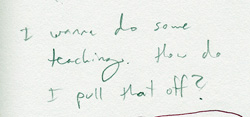 I wanna do some
teaching. How do
I pull that off?